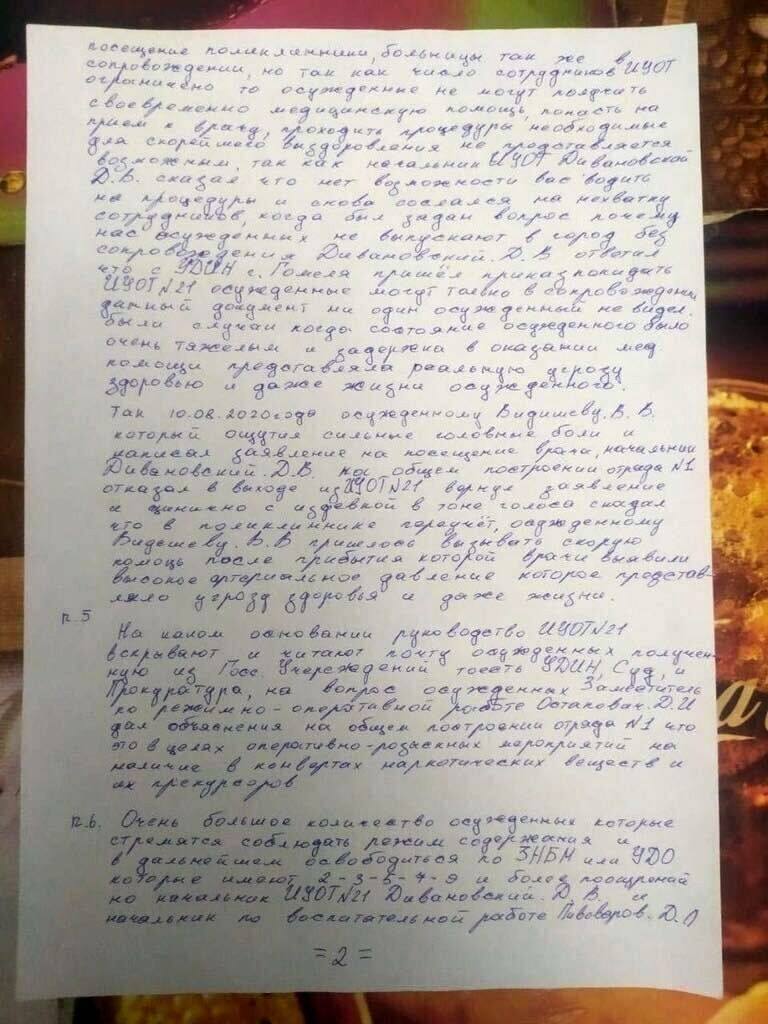 посещение поликлинники, больницы так же в
сопровождении, но так как число сотрудников ИУОТ
ограничено то осужденные не могут получать
своевременно медицинскую помощь, попасть на
прием к врачу, проходить процедуры необходимые
для скорейшего выздоровления не представляется
возможным, так как начальник ИУОТ Дивановской
Д.В. сказал что нет возможности вас водить
на процедуры и снова сослался на нехватку
сотрудников, когда был задан вопрос почему
нас осужденных не выпускают в город без
сопровождения Дивановский. Д.В ответил
что с УДИН г. Гомеля пришёл приказ покидать
ИУОТ №21 осужденные могут только в сопровождении
данный документ ни один осужденный не видел.
были случаи когда состояние осужденного было
очень тяжелым и задержка в оказании мед
помощи представляла реальную угрозу
здоровью и даже жизни осужденного.
Так 10.08.2020 года осужденному Видишеву. В. В.
который ощутил сильные головные боли и
написал заявление на посещение врача, начальник
Дивановский. Д.В. на общем построении отряда №1
отказал в выходе из ИУОТ №21 вернул заявление
и цинично с издевкой в тоне голоса сказал
что в поликлиннике переучёт, осужденному
Видешеву. В.В пришлось вызывать скорую
помощь после прибытия которой врачи выявили
высокое артериальное давление которое представ-
ляло угрозу здоровья и даже жизни.
п.5
На каком основании руководство ИУОТ №21
вскрывают и читают почту осужденных получен-
ную из Госс. Учереждений тоесть УДИН, Суд, и
Прокуратура, на вопрос осужденных Заместитель
по режимно-оперативной работе Остапович. Д.И
дал объяснения на общем построении отряда №1 что
это в целях оперативно-розыскных мероприятий на
наличие в конвертах наркотических веществ и
их прекурсоров
п.6. Очень большое количество осужденных которые
стремятся соблюдать режим содержания и
в дальнейшем освободиться по ЗНБМ или УДО
которые имеют 2-3-5-7-9 и более поощрений
но начальник ИУОТ №21 Дивановский. Д. В. и
начальник по воспитательной работе Пивоваров. Д.
= 2 =